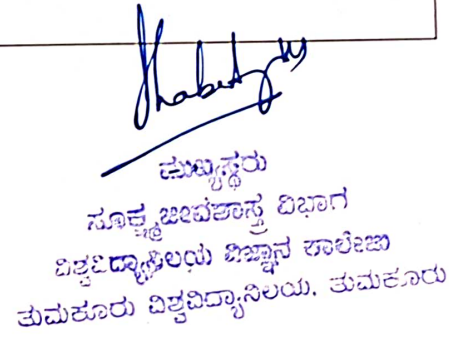 ಮುಖ್ಯಸ್ಥರು
ಸೂಕ್ಷ್ಮಜೀವಶಾಸ್ತ್ರ ವಿಭಾಗ
ವಿಶ್ವವಿದ್ಯಾನಿಲಯ ವಿಜ್ಞಾನ ಕಾಲೇಜು
ತುಮಕೂರು ವಿಶ್ವವಿದ್ಯಾನಿಲಯ, ತುಮಕೂರು